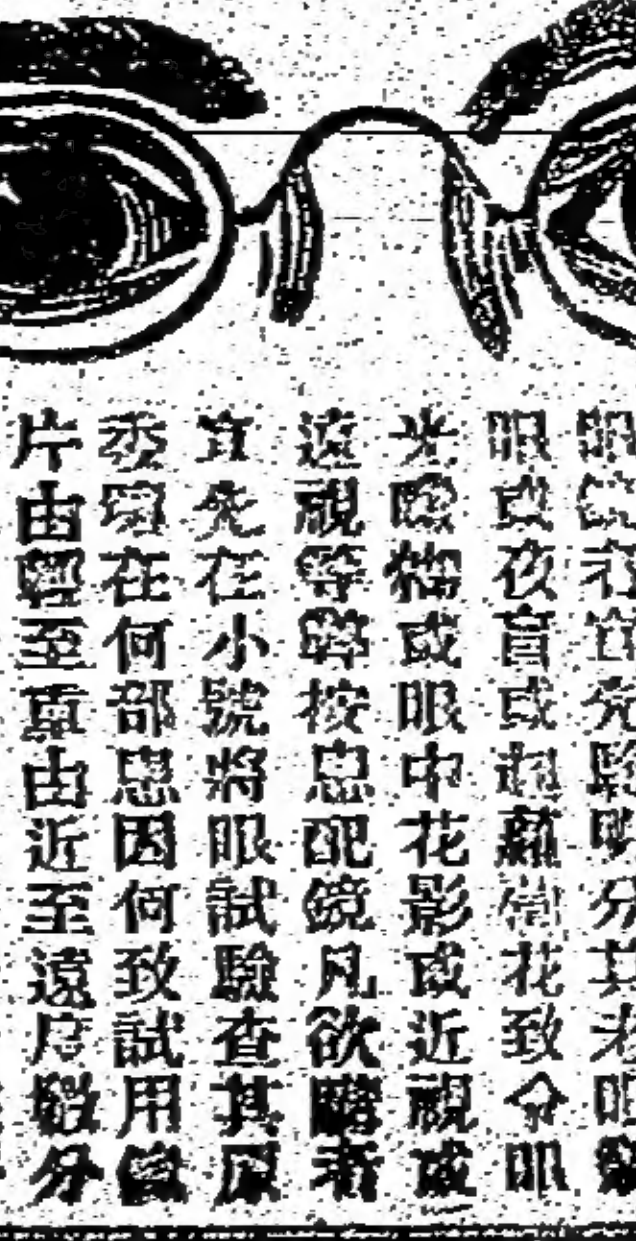 眼鏡衣宜先驗明分其老
眼或夜盲或起蘿蔔花致令眼
光矇糊或眼中花影或近視或
遠視等弊按患配鏡凡欲購者
宜先在小號將眼試驗查其原
委瑕在何部患因何致試用鏡
片由輕至重由近至遠度數分